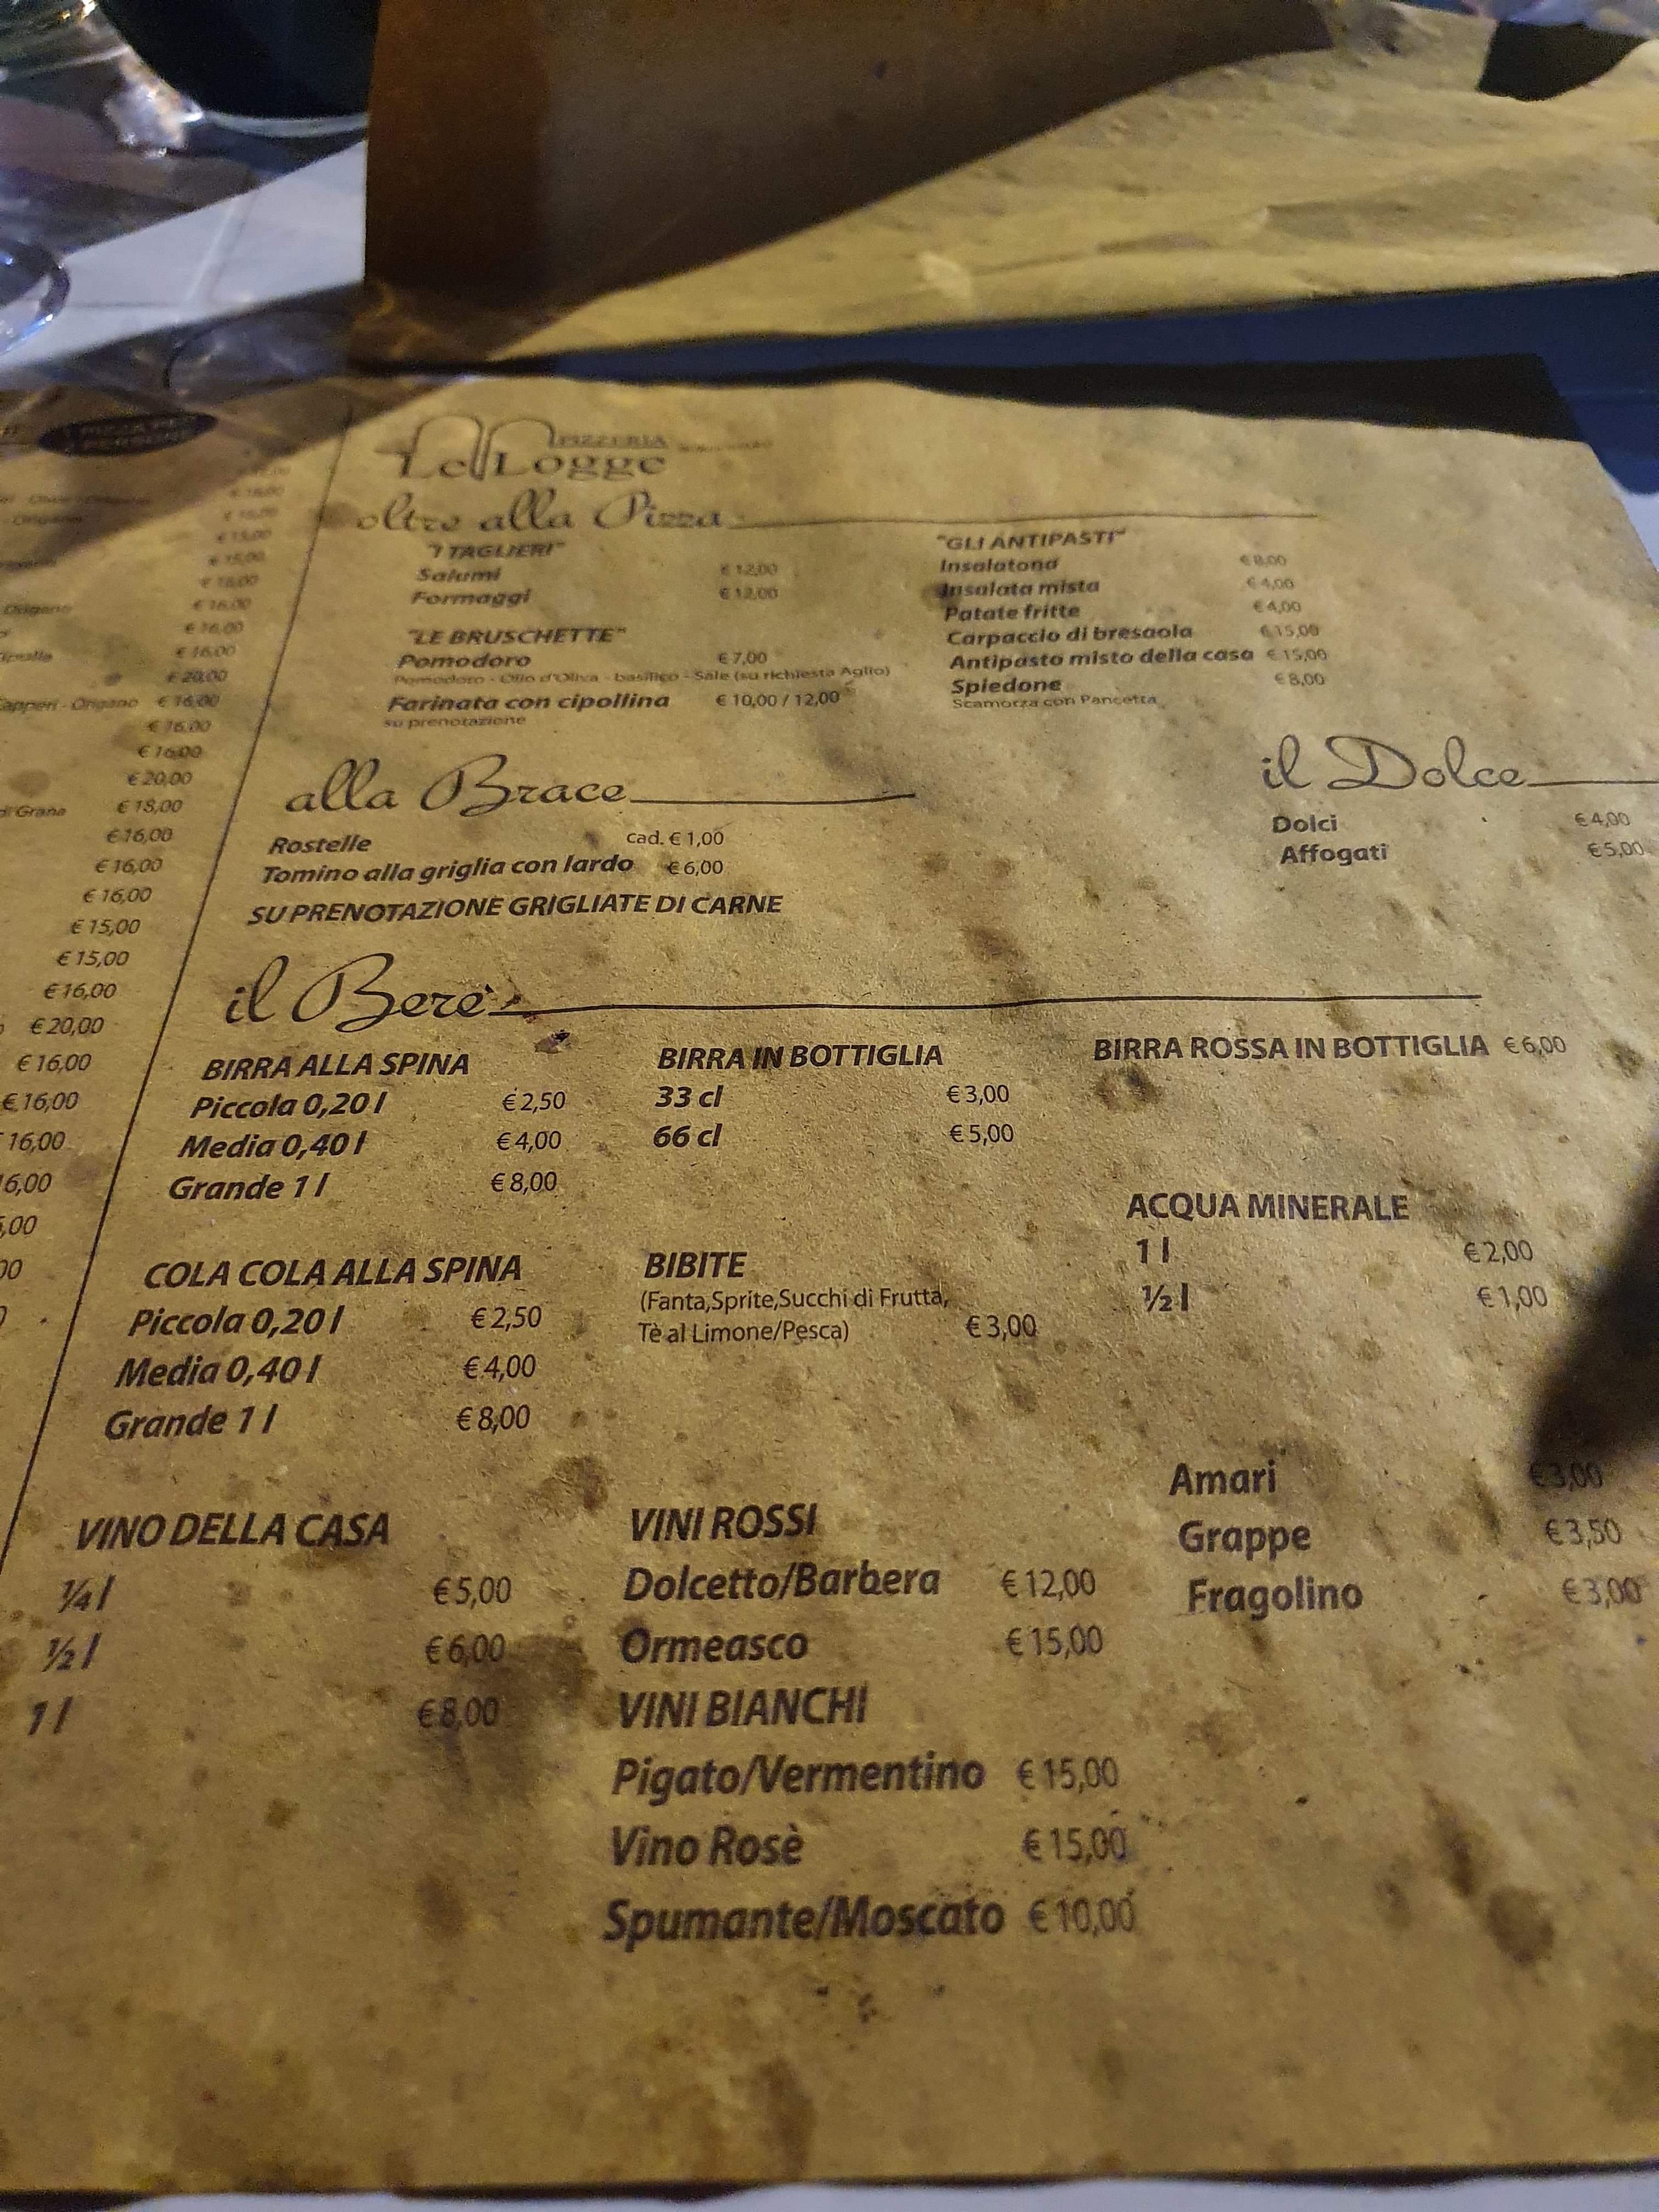 PIZZERIA
Le Logge
oltre alla Pizza
"I TAGLIERI"
Salumi € 12,00
Formaggi € 12,00
"LE BRUSCHETTE"
Pomodoro € 7,00
Pomodoro - Olio d'Oliva - basilico - Sale (su richiesta Aglio)
Farinata con cipollina € 10,00 / 12,00
su prenotazione
"GLI ANTIPASTI"
Insalatona € 8,00
Insalata mista € 4,00
Patate fritte € 4,00
Carpaccio di bresaola € 15,00
Antipasto misto della casa € 15,00
Spiedone € 8,00
Scamorza con Pancetta
alla Brace
Rostelle cad. € 1,00
Tomino alla griglia con lardo € 6,00
SU PRENOTAZIONE GRIGLIATE DI CARNE
il Dolce
Dolci € 4,00
Affogati € 5,00
il Berè
BIRRA ALLA SPINA
Piccola 0,20 l € 2,50
Media 0,40 l € 4,00
Grande 1 l € 8,00
BIRRA IN BOTTIGLIA
33 cl € 3,00
66 cl € 5,00
BIRRA ROSSA IN BOTTIGLIA € 6,00
COLA COLA ALLA SPINA
Piccola 0,20 l € 2,50
Media 0,40 l € 4,00
Grande 1 l € 8,00
BIBITE
(Fanta,Sprite,Succhi di Frutta,
Tè al Limone/Pesca) € 3,00
ACQUA MINERALE
1 l € 2,00
½ l € 1,00
VINO DELLA CASA
¼ l € 5,00
½ l € 6,00
1 l € 8,00
VINI ROSSI
Dolcetto/Barbera € 12,00
Ormeasco € 15,00
VINI BIANCHI
Pigato/Vermentino € 15,00
Vino Rosè € 15,00
Spumante/Moscato € 10,00
Amari € 3,00
Grappe € 3,50
Fragolino € 3,00
Origano
€ 16,00
€ 16,00
€ 16,00
€ 20,00
Capperi - Origano € 16,00
€ 16,00
€ 16,00
€ 20,00
di Grana € 18,00
€ 16,00
€ 16,00
€ 16,00
€ 15,00
€ 15,00
€ 16,00
€ 20,00
€ 16,00
€ 16,00
16,00
6,00
,00
00